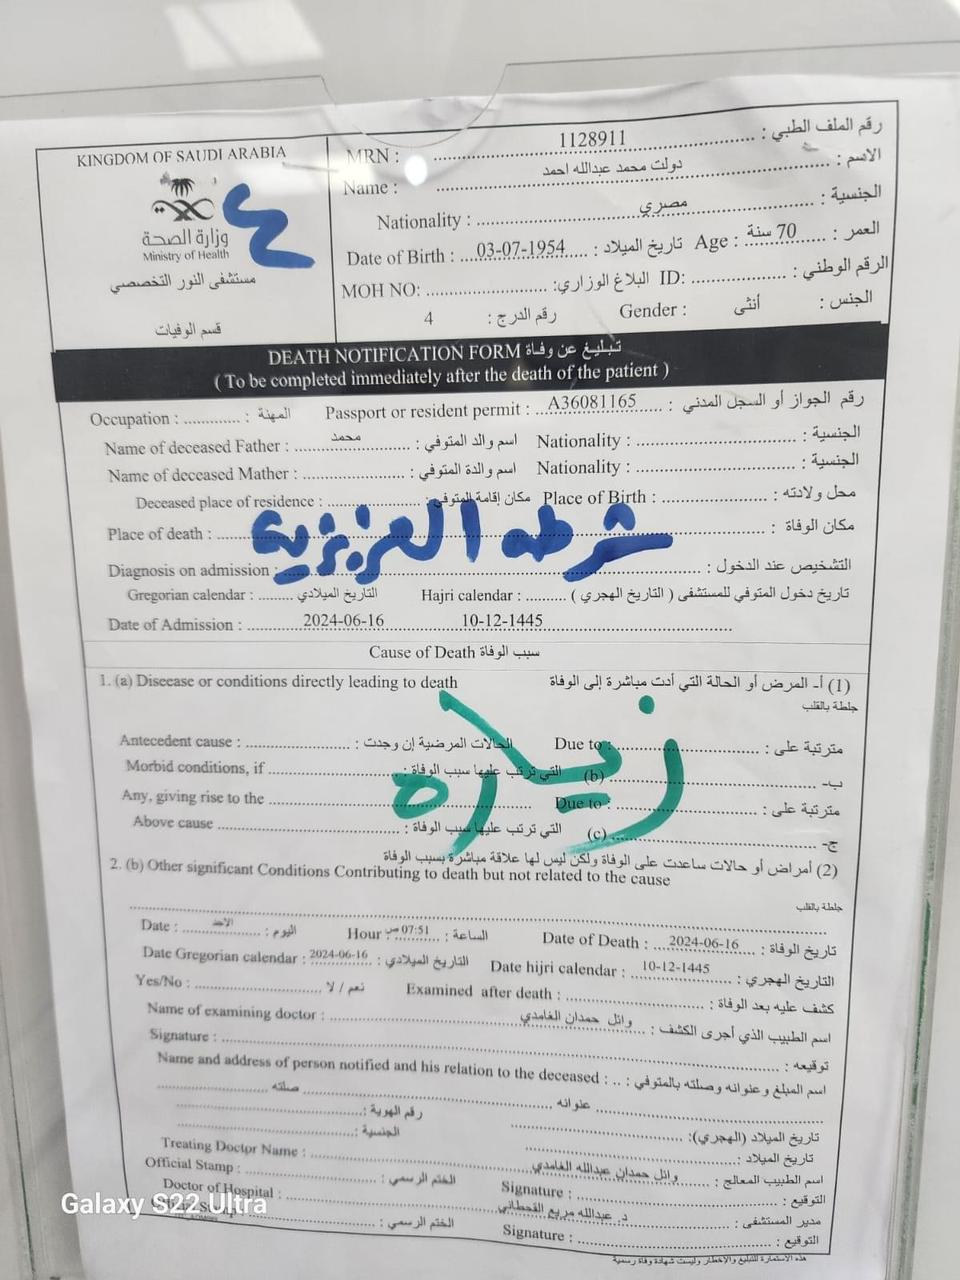 KINGDOM OF SAUDI ARABIA
وزارة الصحة
Ministry of Health
مستشفى النور التخصصي
قسم الوفيات
٤
MRN : 1128911 رقم الملف الطبي :
Name : دولت محمد عبدالله احمد الاسم :
Nationality : مصري الجنسية :
Date of Birth : 03-07-1954 تاريخ الميلاد : Age : 70 سنة العمر :
MOH NO: البلاغ الوزاري: ID: الرقم الوطني :
4 رقم الدرج : Gender : أنثى الجنس :
DEATH NOTIFICATION FORM تبليغ عن وفاة
( To be completed immediately after the death of the patient )
Occupation : المهنة : Passport or resident permit : A36081165 رقم الجواز أو السجل المدني :
Name of deceased Father : محمد اسم والد المتوفي : Nationality : الجنسية :
Name of deceased Mather : اسم والدة المتوفي : Nationality : الجنسية :
Deceased place of residence : مكان إقامة المتوفي : Place of Birth : محل ولادته :
Place of death : مكان الوفاة :
شرطه العزيزيه
Diagnosis on admission : التشخيص عند الدخول :
Gregorian calendar : التاريخ الميلادي Hajri calendar : تاريخ دخول المتوفي للمستشفى ( التاريخ الهجري )
Date of Admission : 2024-06-16 10-12-1445
Cause of Death سبب الوفاة
1. (a) Diseease or conditions directly leading to death (1) أ- المرض أو الحالة التي أدت مباشرة إلى الوفاة
جلطة بالقلب
زياره
Antecedent cause : الحالات المرضية إن وجدت : Due to : مترتبة على :
Morbid conditions, if التي ترتب عليها سبب الوفاة : (b) ب-
Any, giving rise to the Due to : مترتبة على :
Above cause التي ترتب عليها سبب الوفاة : (c) ج-
(2) أمراض أو حالات ساعدت على الوفاة ولكن ليس لها علاقة مباشرة بسبب الوفاة
2. (b) Other significant Conditions Contributing to death but not related to the cause
جلطة بالقلب
Date : الاحد اليوم : Hour : 07:51 ص الساعة : Date of Death : 2024-06-16 تاريخ الوفاة :
Date Gregorian calendar : 2024-06-16 التاريخ الميلادي : Date hijri calendar : 10-12-1445 التاريخ الهجري :
Yes/No : نعم / لا Examined after death : كشف عليه بعد الوفاة :
Name of examining doctor : وائل حمدان الغامدي اسم الطبيب الذي أجرى الكشف :
Signature : توقيعه :
Name and address of person notified and his relation to the deceased : اسم المبلغ وعنوانه وصلته بالمتوفي :
صلته عنوانه
رقم الهوية : تاريخ الميلاد (الهجري):
الجنسية : تاريخ الميلاد :
Treating Doctor Name : وائل حمدان عبدالله الغامدي اسم الطبيب المعالج :
Official Stamp : الختم الرسمي : Signature : التوقيع :
Doctor of Hospital : د. عبدالله مريع القحطاني مدير المستشفى :
الختم الرسمي : Signature : التوقيع :
هذه الاستمارة للتبليغ والاخطار وليست شهادة وفاة رسمية
Galaxy S22 Ultra